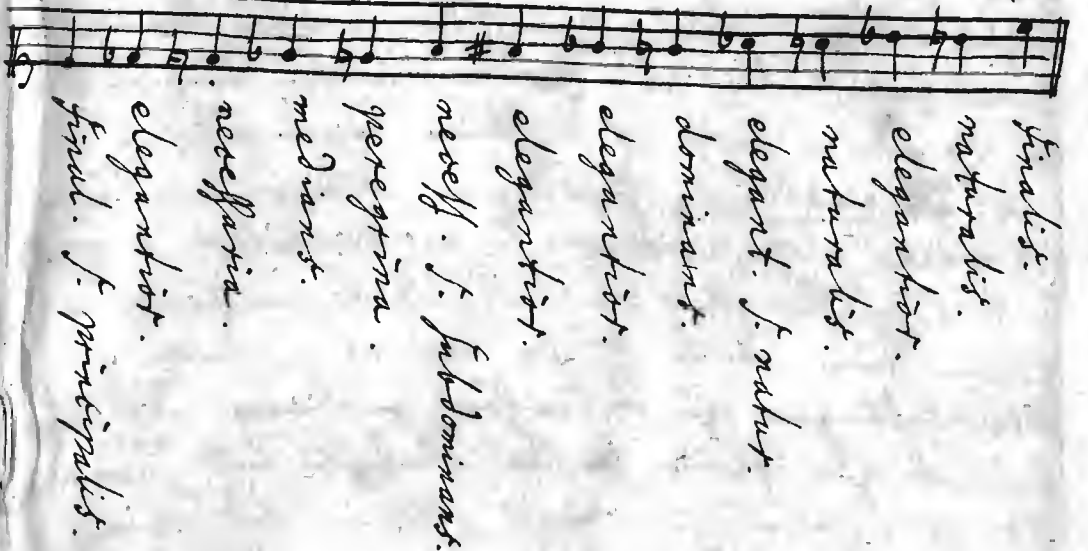 Final. s. principalis.
elegantior.
necessaria.
medians.
peregrina.
necess. s. subdominans.
elegantior.
elegantior.
dominans.
elegant. s. natur.
naturalis.
elegantior.
naturalis.
Finalis.